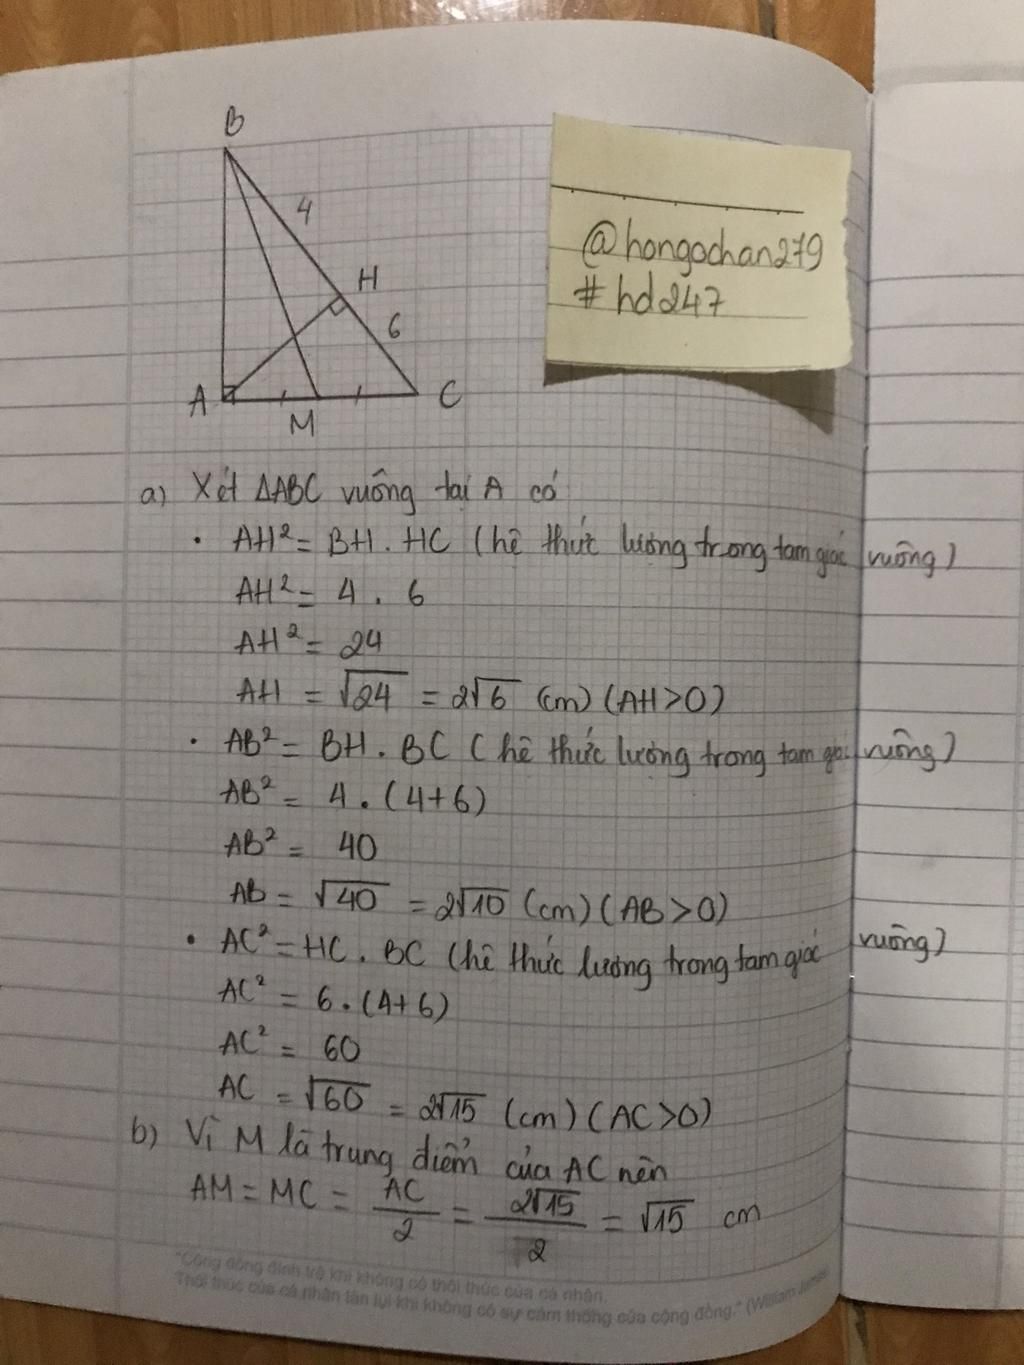 B
4
H
6
A
M
C
@hongochan279
#hd247
a) Xét ΔABC vuông tại A có
• AH² = BH . HC (hệ thức lượng trong tam giác vuông)
AH² = 4 . 6
AH² = 24
AH = √24 = 2√6 (cm) (AH>0)
• AB² = BH . BC (hệ thức lượng trong tam giác vuông)
AB² = 4 . (4+6)
AB² = 40
AB = √40 = 2√10 (cm) (AB>0)
• AC² = HC . BC (hệ thức lượng trong tam giác vuông)
AC² = 6 . (4+6)
AC² = 60
AC = √60 = 2√15 (cm) (AC>0)
b) Vì M là trung điểm của AC nên
AM = MC = AC/2 = 2√15/2 = √15 cm
"Cộng đồng đình trệ khi không có thôi thúc của cá nhân.
Thôi thúc của cá nhân tàn lụi khi không có sự cảm thông của cộng đồng." (William James)